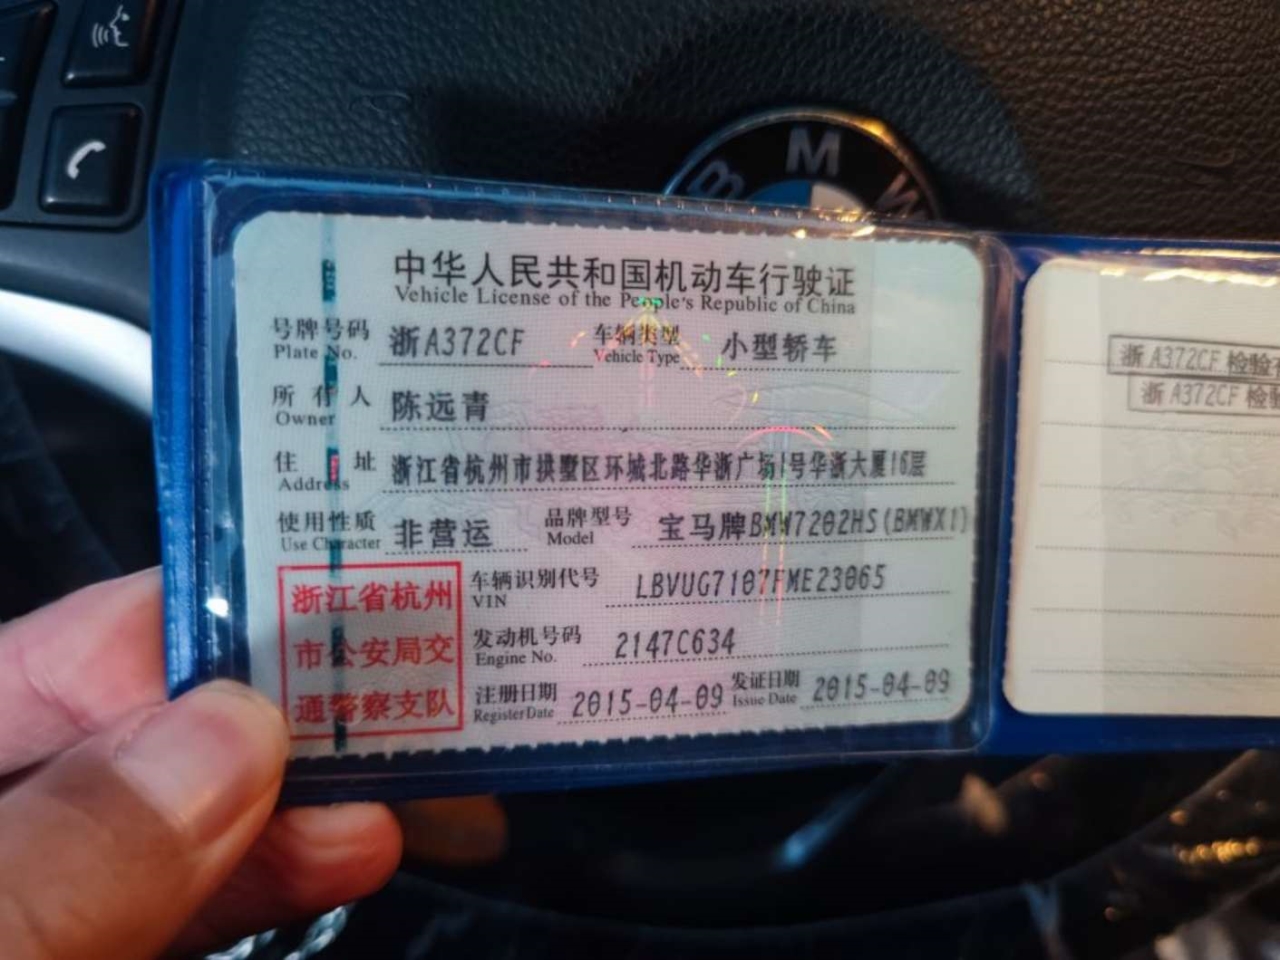 BMW
中华人民共和国机动车行驶证
Vehicle License of the People's Republic of China
号牌号码 浙A372CF 车辆类型 小型轿车
Plate No. Vehicle Type
所有人 陈远青
Owner
住址 浙江省杭州市拱墅区环城北路华浙广场1号华浙大厦16层
Address
使用性质 非营运 品牌型号 宝马牌BMW7202HS(BMWX1)
Use Character Model
浙江省杭州
市公安局交
通警察支队
车辆识别代号 LBVUG7107FME23065
VIN
发动机号码 2147C634
Engine No.
注册日期 2015-04-09 发证日期 2015-04-09
Register Date Issue Date
浙A372CF 检验
浙A372CF 检验